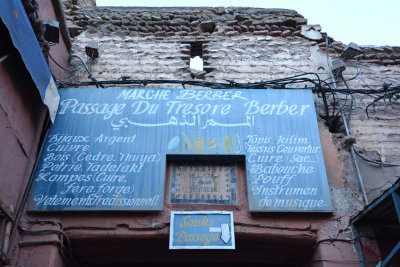 MARCHE BERBER
Passage Du Tresore Berber
الممر الذهبي
Bijoux Argent
Cuivre
Bois (Cedre, Thuya)
Potrie, Tadelakt
Lampes (Cuire,
fere forge)
Vetements Tradissionnel
Tapis kilim
Tessus Couvertur
Cuire (Sac...
Babouche
Pouff
Instrumen
de musique
Souks
Passage